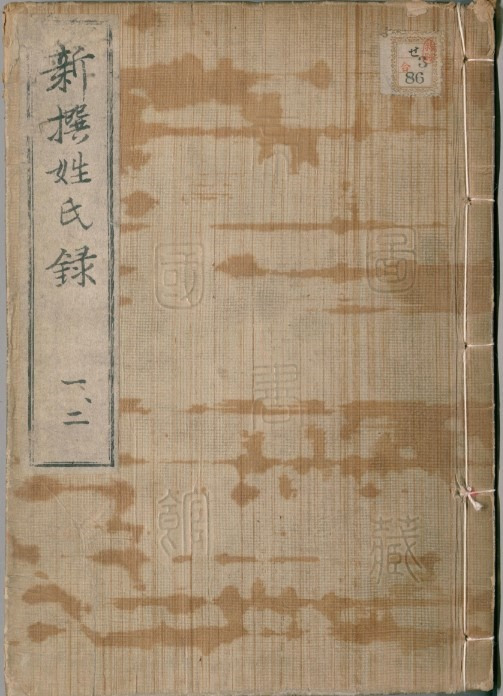 新撰姓氏録
一、二
せ
86
國
圖
書
館
藏